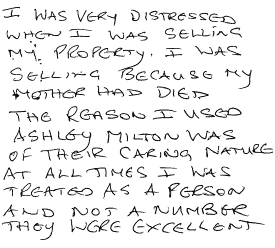 I WAS VERY DISTRESSED
WHEN I WAS SELLING
MY PROPERTY. I WAS
SELLING BECAUSE MY
MOTHER HAD DIED
THE REASON I USED
ASHLEY MILTON WAS
OF THEIR CARING NATURE
AT ALL TIMES I WAS
TREATED AS A PERSON
AND NOT A NUMBER
THEY WERE EXCELLENT